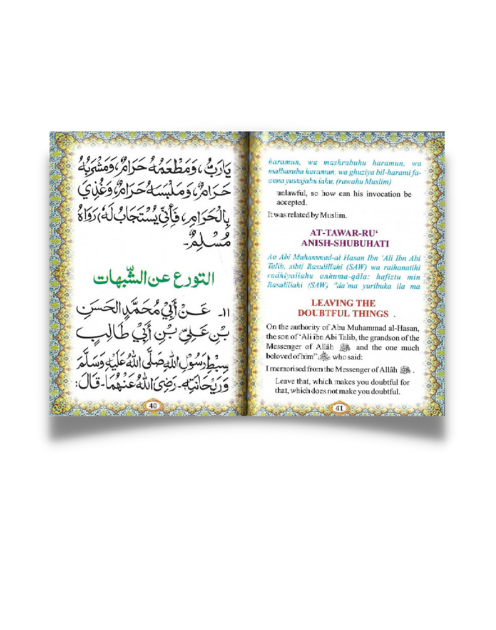 يَارَبُّ، وَمَطْعَمُهُ حَرَامٌ، وَمَشْرَبُهُ
حَرَامٌ، وَمَلْبَسُهُ حَرَامٌ، وَغُذِيَ
بِالْحَرَامِ، فَأَنَّى يُسْتَجَابُ لَهُ، رَوَاهُ
مُسْلِمٌ۔
التورع عن الشّبهات
١١۔ عَنْ أَبِيْ مُحَمَّدٍ الْحَسَنِ
بْنِ عَلِيِّ بْنِ أَبِيْ طَالِبٍ
سِبْطِ رَسُوْلِ اللّٰهِ صَلَّى اللّٰهُ عَلَيْهِ وَسَلَّمَ
وَرَيْحَانَتِهٖ۔ رَضِىَ اللّٰهُ عَنْهُمَا۔ قَالَ:
40
haramun, wa mashrabuhu haramun, wa
malbasuhu haramun, wa ghuziya bil-harami fa-
unlawful, so how can his invocation be
accepted.
It was related by Muslim.
AT-TAWAR-RU‘
ANISH-SHUBUHATI
An Abi Muhammad-al Hasan Ibn 'Ali Ibn Abi
Talib, sibti Rasulillahi (SAW) wa raihanatihi
radhiyallahu anhuma-qāla: hafiztu min
Rasulillahi (SAW) "da'ma yuribuka ila ma
LEAVING THE
DOUBTFUL THINGS .
On the authority of Abu Muhammad al-Hasan,
the son of 'Ali ibn Abi Talib, the grandson of the
Messenger of Allāh ﷺ and the one much
beloved of him" ﷺ who said:
I memorised from the Messenger of Allāh ﷺ .
Leave that, which makes you doubtful for
that, which does not make you doubtful.
41